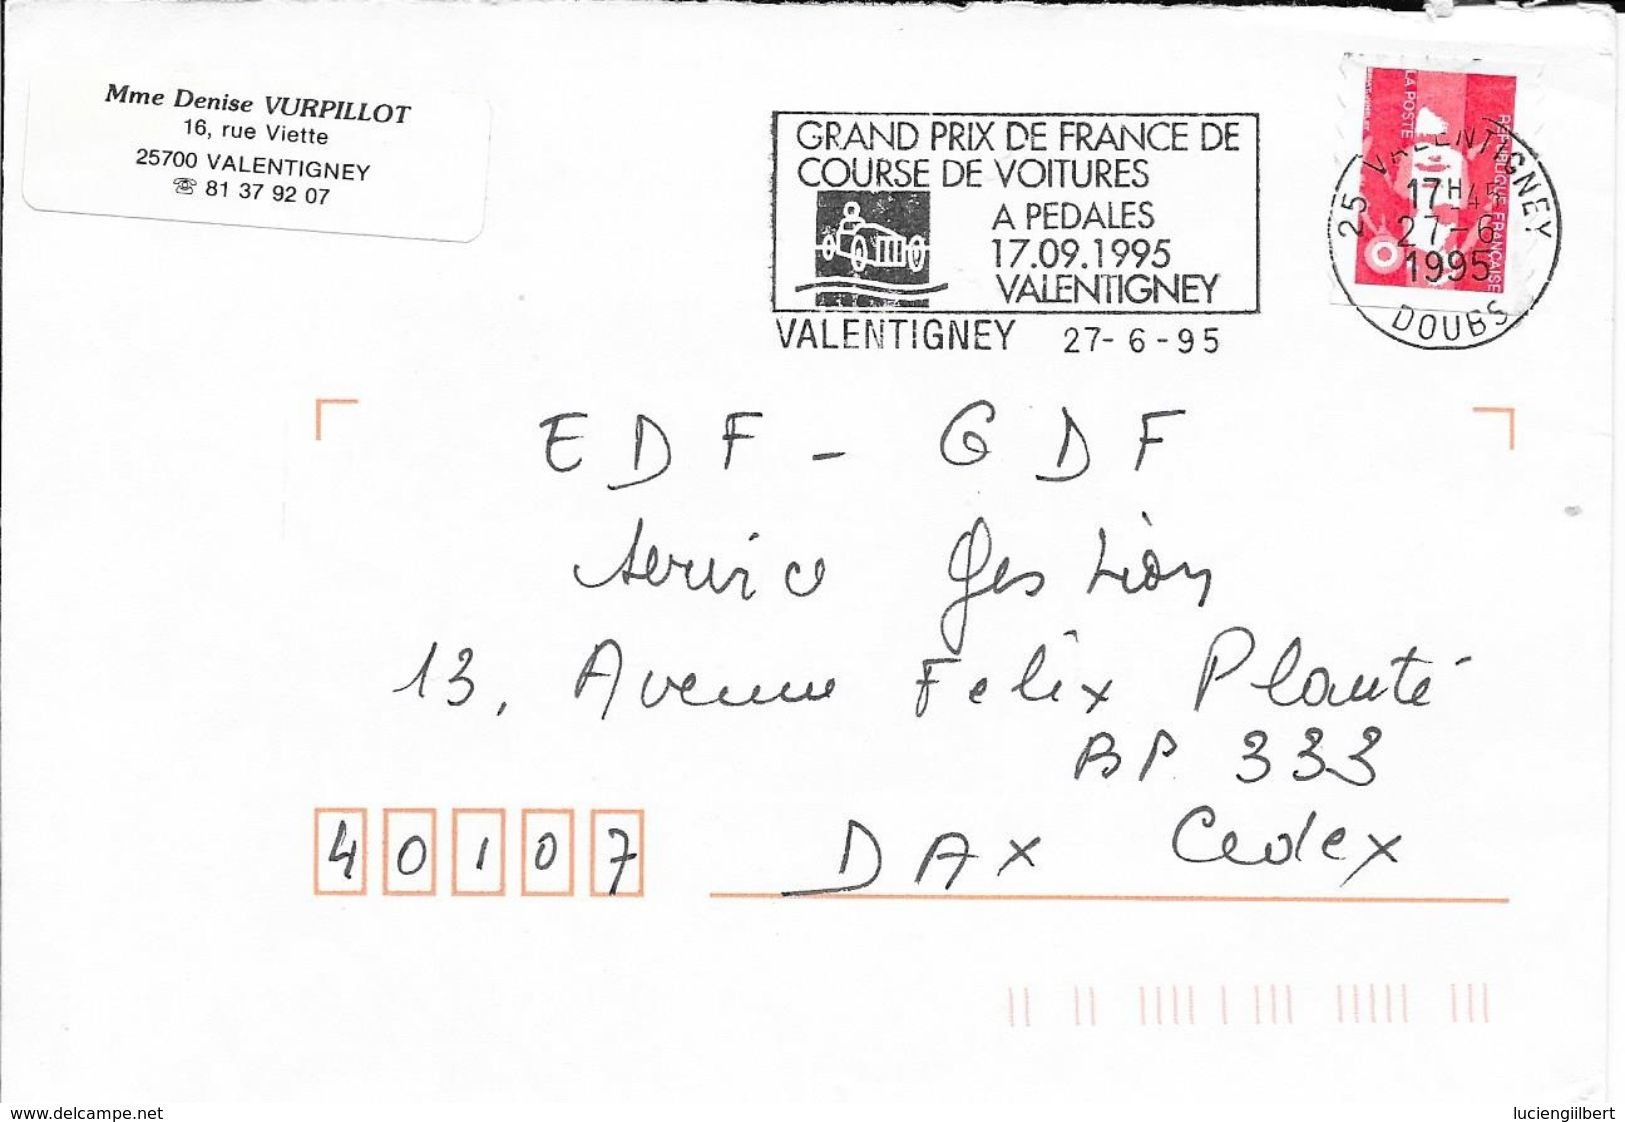 Mme Denise VURPILLOT
16, rue Viette
25700 VALENTIGNEY
☎ 81 37 92 07
GRAND PRIX DE FRANCE DE
COURSE DE VOITURES
A PEDALES
17.09.1995
VALENTIGNEY
VALENTIGNEY 27-6-95
LA POSTE
REPUBLIQUE FRANÇAISE
25 VALENTIGNEY
17H45
27-6
1995
DOUBS
EDF - GDF
Service Gestion
13, Avenue Felix Planté
BP 333
40107 DAX Cedex
www.delcampe.net
luciengilbert